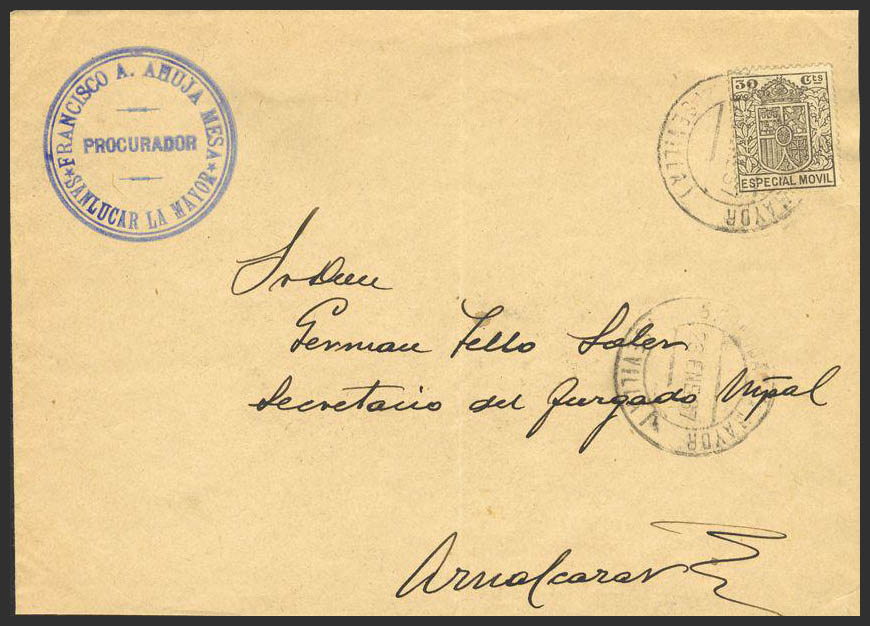 FRANCISCO A. AHUJA MESA
PROCURADOR
*SANLUCAR LA MAYOR*
30 Cts
ESPECIAL MOVIL
MAYOR (SEVILLA)
Sr Don
German Tello Soler
Secretario del Jurgado Mpal
EN
MAYOR
Arnalcarar